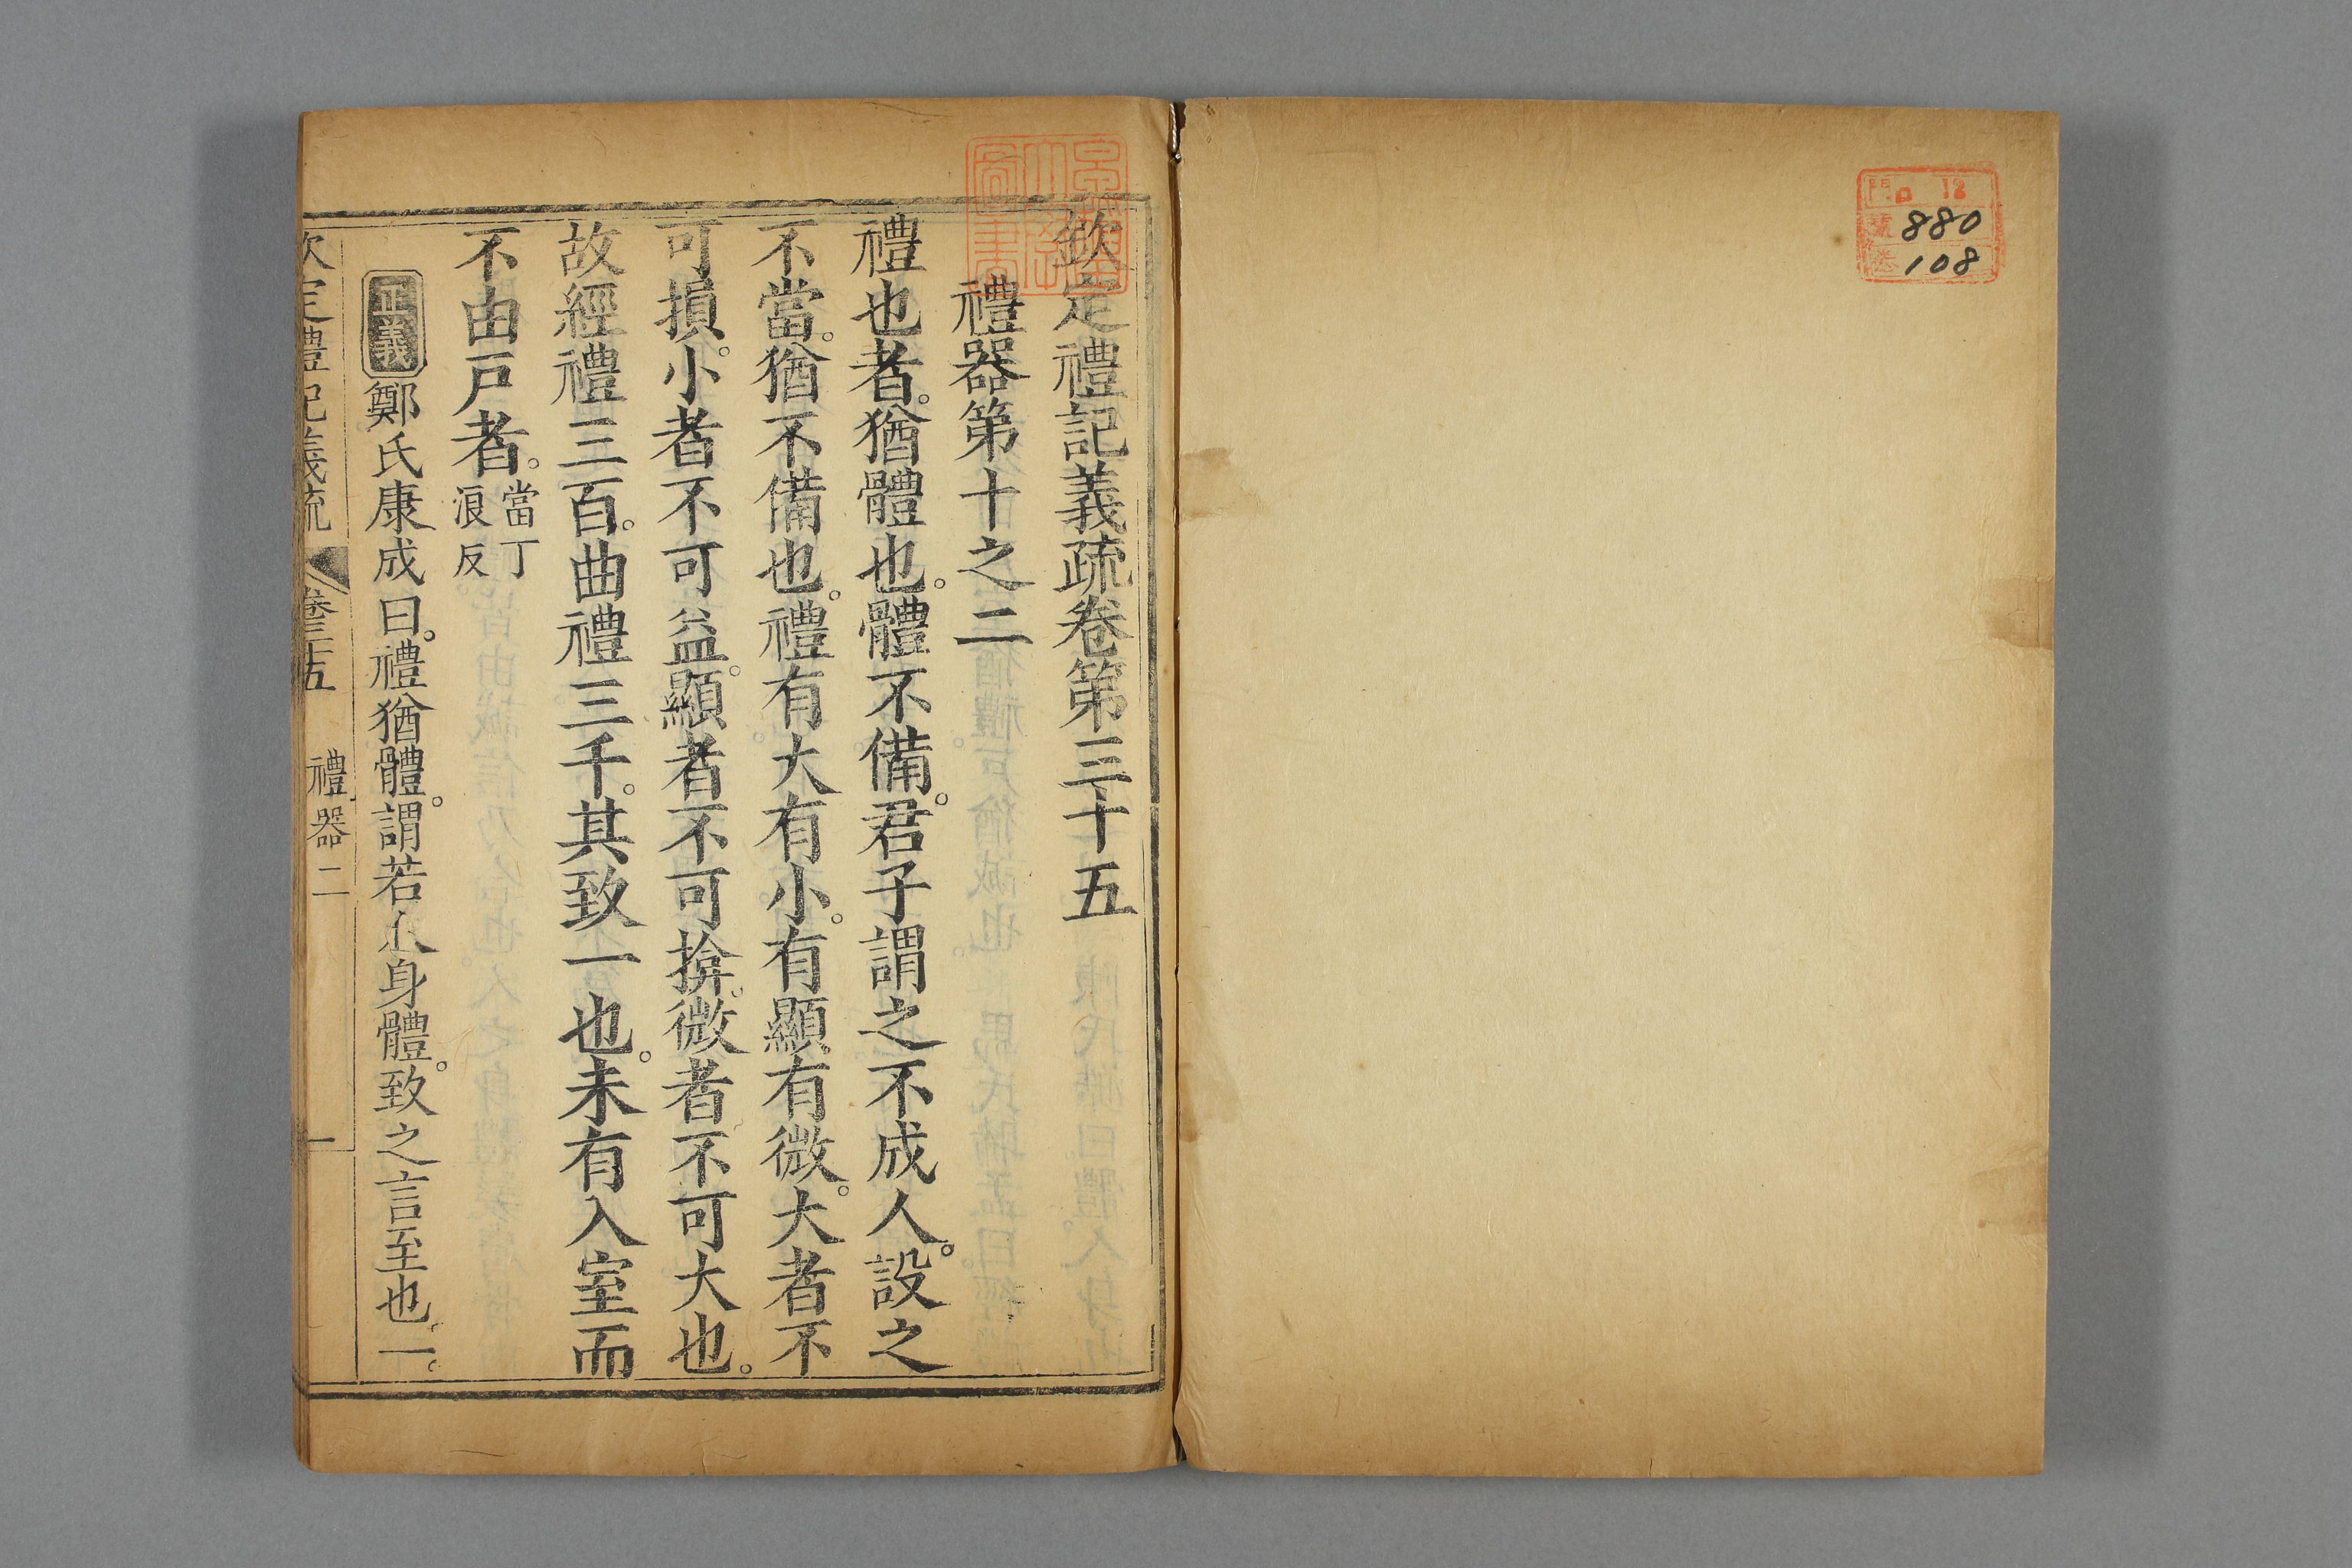 門 口 12
號 880
卷 108
欽定禮記義疏卷第三十五
禮器第十之二
禮也者。猶體也。體不備。君子謂之不成人。設之
不當。猶不備也。禮有大有小。有顯有微。大者不
可損。小者不可益。顯者不可揜。微者不可大也。
故經禮三百。曲禮三千。其致一也。未有入室而
不由戸者。當丁浪反
正義 鄭氏康成曰。禮猶體。謂若人身體。致之言至也。一。
欽定禮記義疏 卷三十五 禮器二 一